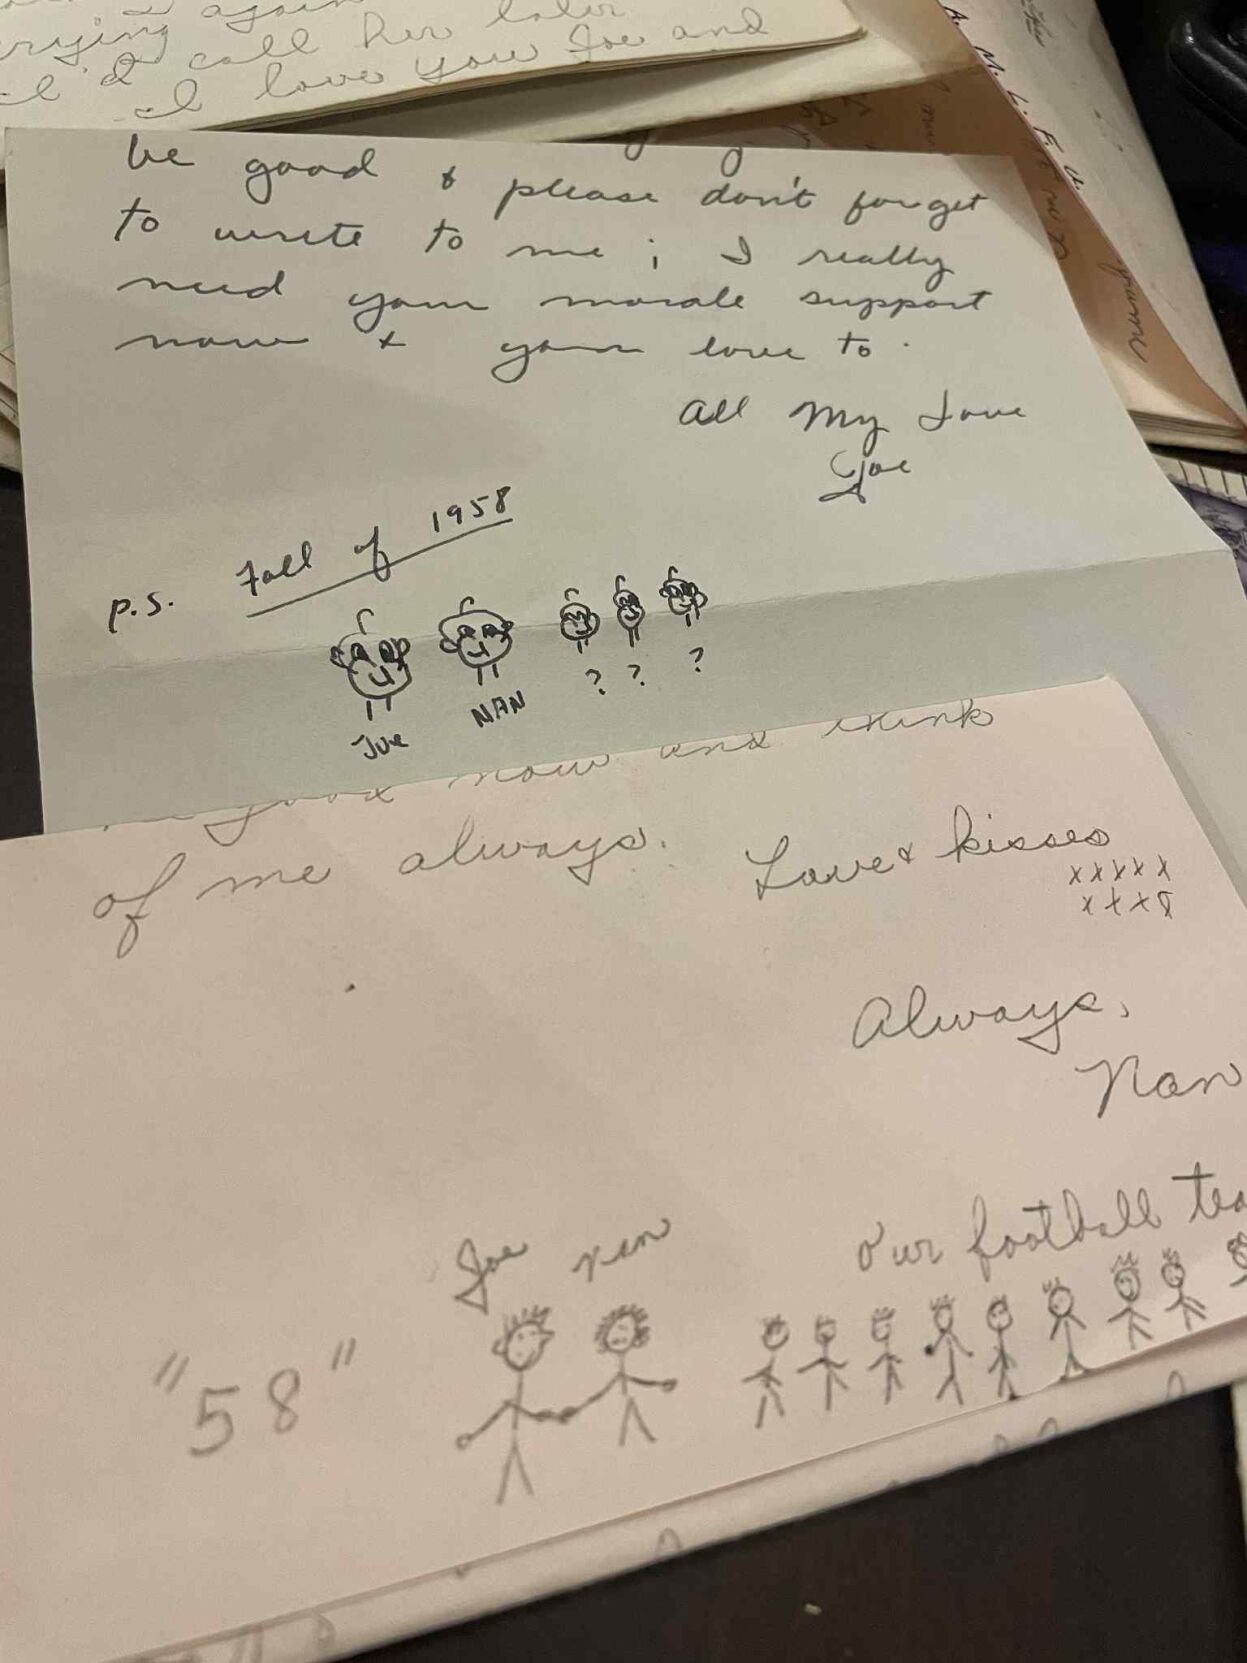 again
crying
I'd call her later
I love you Joe and
A. M. L. F. U.
be good & please don't forget
to write to me ; I really
need your morale support
now & your love to.
All My Love
Joe
p.s. Fall of 1958
Joe NAN ? ? ?
good now and think
of me always.
Love & kisses
xxxxx
xxx8
Always,
Nan
Joe nan
Our football tea
"58"